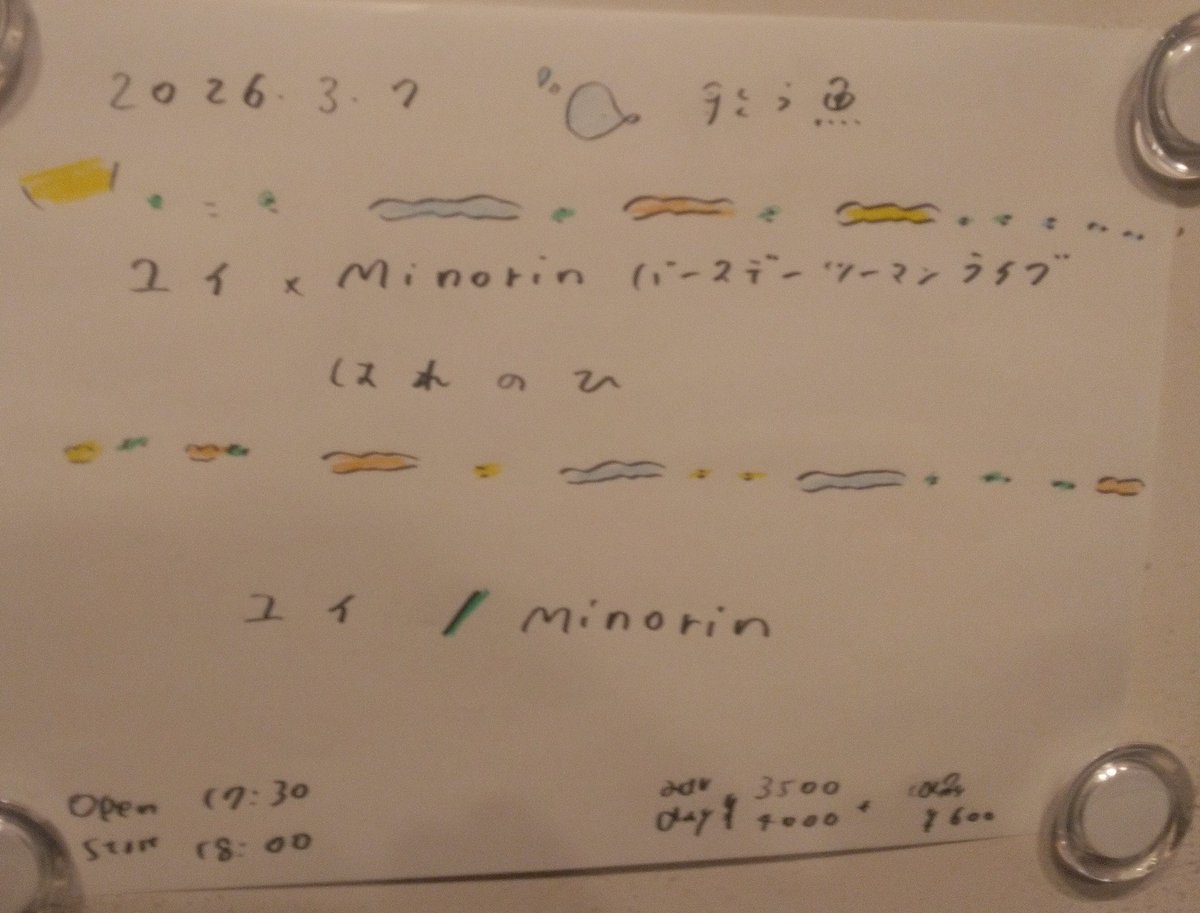 2026.3.7
ユイ × Minorin バースデーツーマンライブ
はれのひ
ユイ / Minorin
Open 17:30
Start 18:00
adv. 3500
day ¥4000 +
¥600